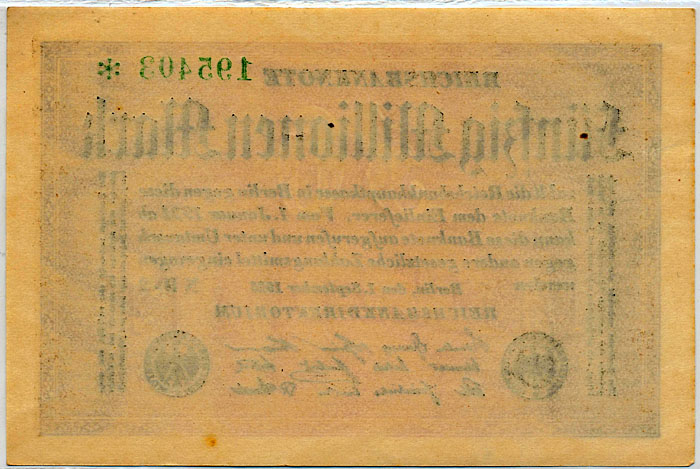 REICHSBANKNOTE 195403 *
Fünfzig Millionen Mark
zahlt die Reichsbankhauptkasse in Berlin gegen diese
Banknote dem Einlieferer. Vom 1. Januar 1924 ab
kann diese Banknote aufgerufen und unter Umtausch
gegen andere gesetzliche Zahlungsmittel eingezogen
werden
Berlin, den 1. September 1923
REICHSBANKDIREKTORIUM